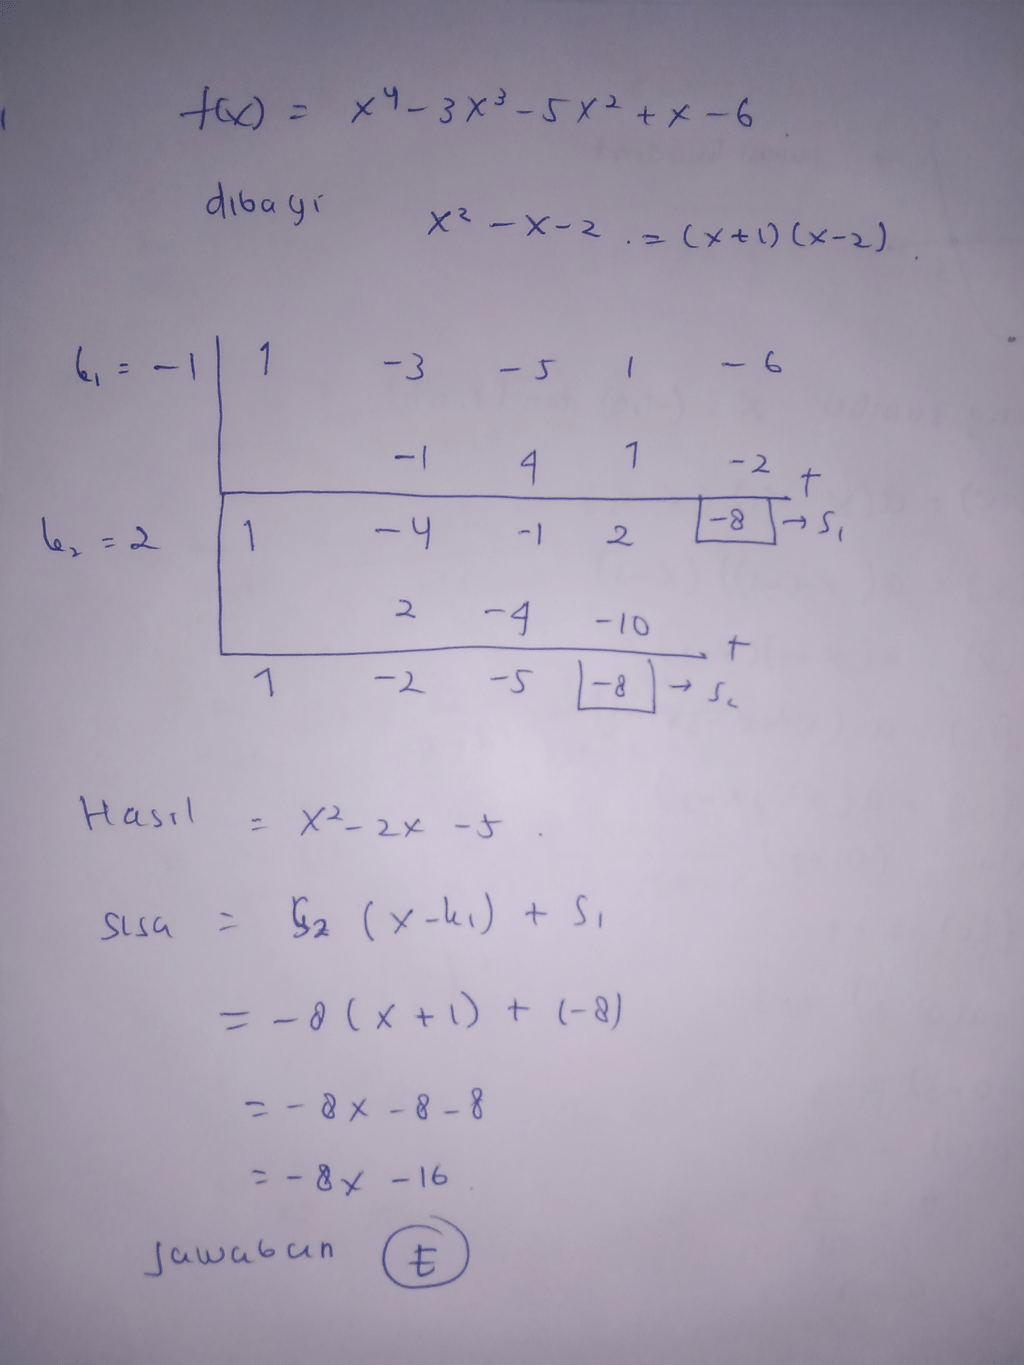 f(x) = x⁴ - 3x³ - 5x² + x - 6
dibagi x² - x - 2 . = (x+1)(x-2)
k₁ = -1 | 1 -3 -5 1 -6
-1 4 1 -2 +
k₂ = 2 | 1 -4 -1 2 -8 → S₁
2 -4 -10 +
1 -2 -5 -8 → S₂
Hasil = x² - 2x - 5 .
sisa = S₂ (x - k₁) + S₁
= -8 (x + 1) + (-8)
= -8x - 8 - 8
= -8x - 16
Jawaban E